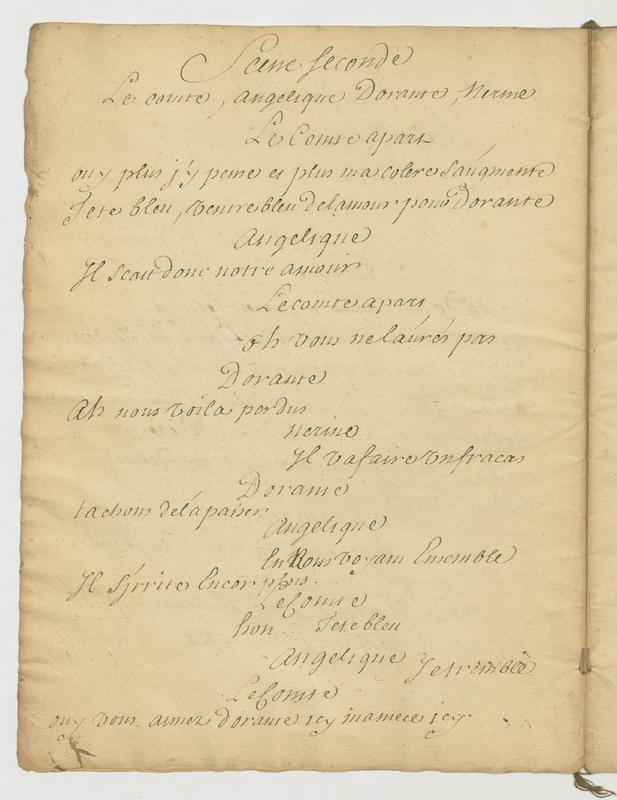 Scene Seconde
Le comte, angelique Dorante, Nerine
Le Comte apart
ouy plus j'y pense et plus ma colere s'augmente
Tete bleu, ventre bleu de l'amour pour Dorante
Angelique
Il scait donc notre amour
Le comte apart
oh vous ne l'aurés pas
Dorante
Ah nous voila perdus
Nerine
Il va faire un fracas
Dorante
tachons de l'apaiser
Angelique
En nous voyant Ensemble
Il s'irrite Encor plus.
Le Comte
hon Tete bleu
Angelique
Je tremble
Le Comte
ouy vous aimez dorante icy ma niece icy